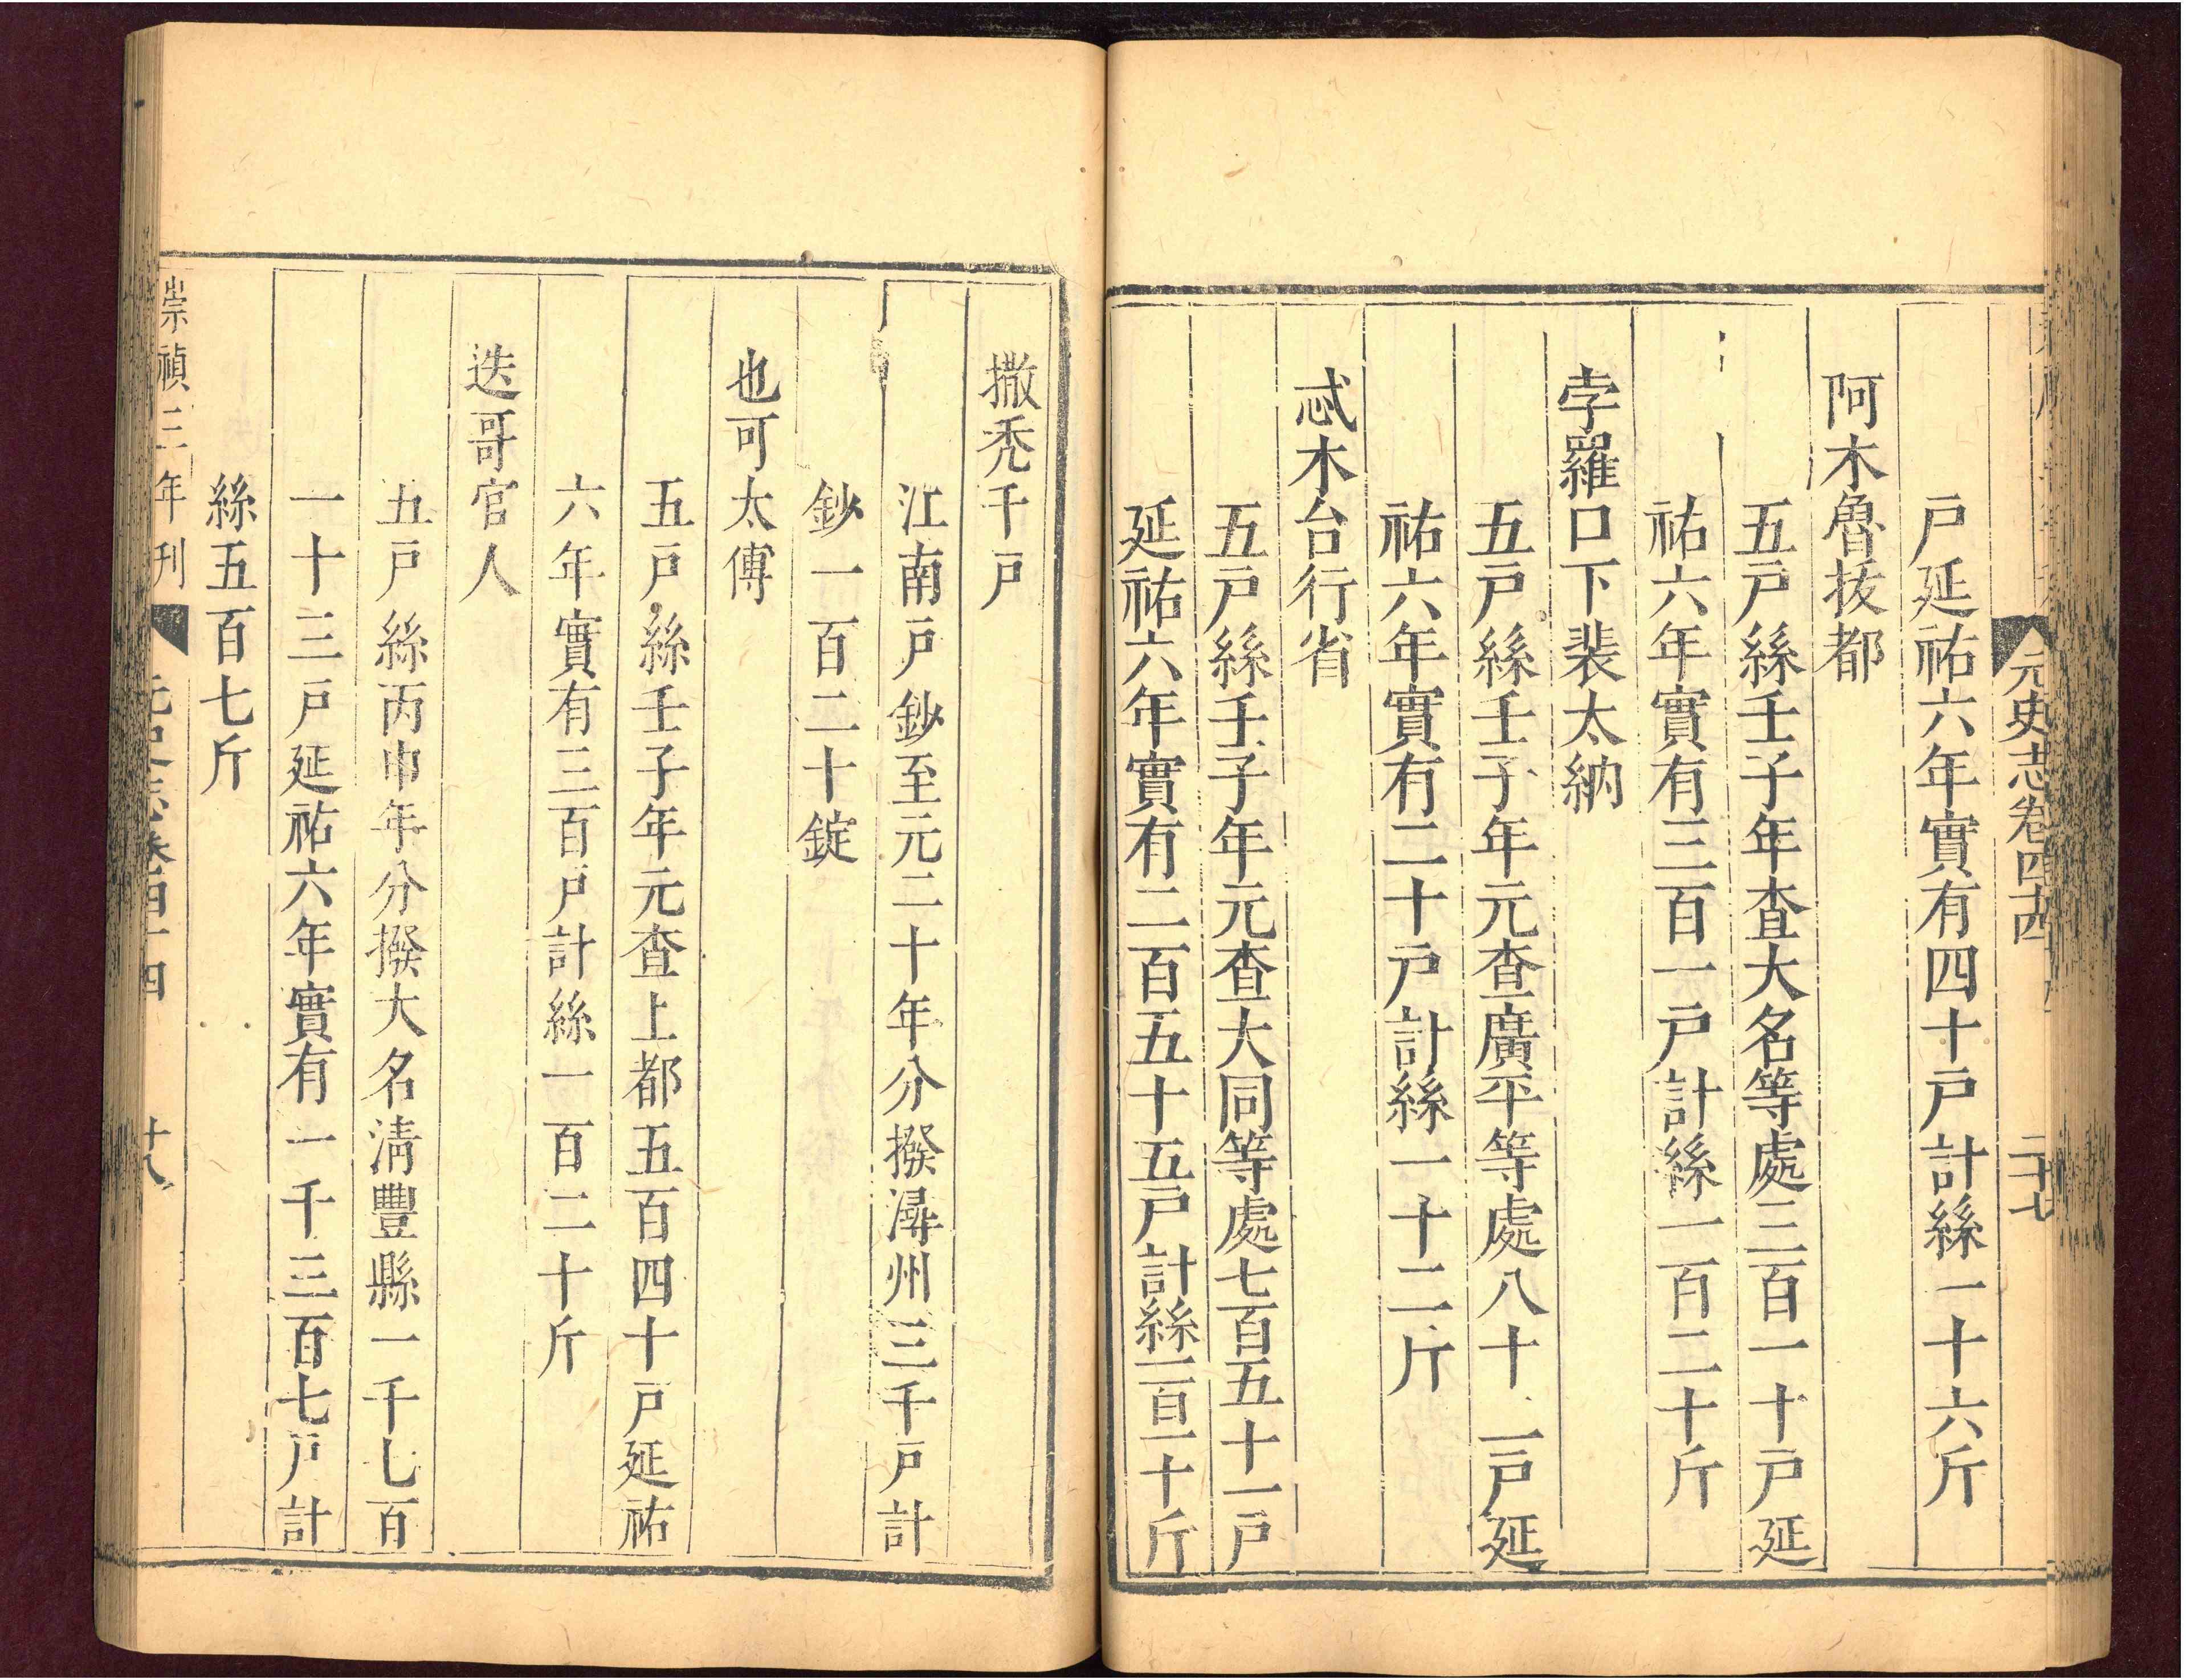 元史志卷四十四
二十七
戸延祐六年實有四十戸計絲一十六斤
阿木魯拔都
五戸絲壬子年查大名等處三百一十戸延
祐六年實有三百一戸計絲一百二十斤
孛羅口下裴太納
五戸絲壬子年元查廣平等處八十二戸延
祐六年實有二十戸計絲一十二斤
忒木台行省
五戸絲壬子年元查大同等處七百五十一戸
延祐六年實有二百五十五戸計絲一百二十斤
撒禿千戸
江南戸鈔至元二十年分撥潯州三千戸計
鈔一百二十錠
也可太傅
五戸絲壬子年元查上都五百四十戸延祐
六年實有三百戸計絲一百二十斤
迭哥官人
五戸絲丙申年分撥大名淸豐縣一千七百
一十三戸延祐六年實有一千三百七戸計
絲五百七斤
崇禎三年刊
十八